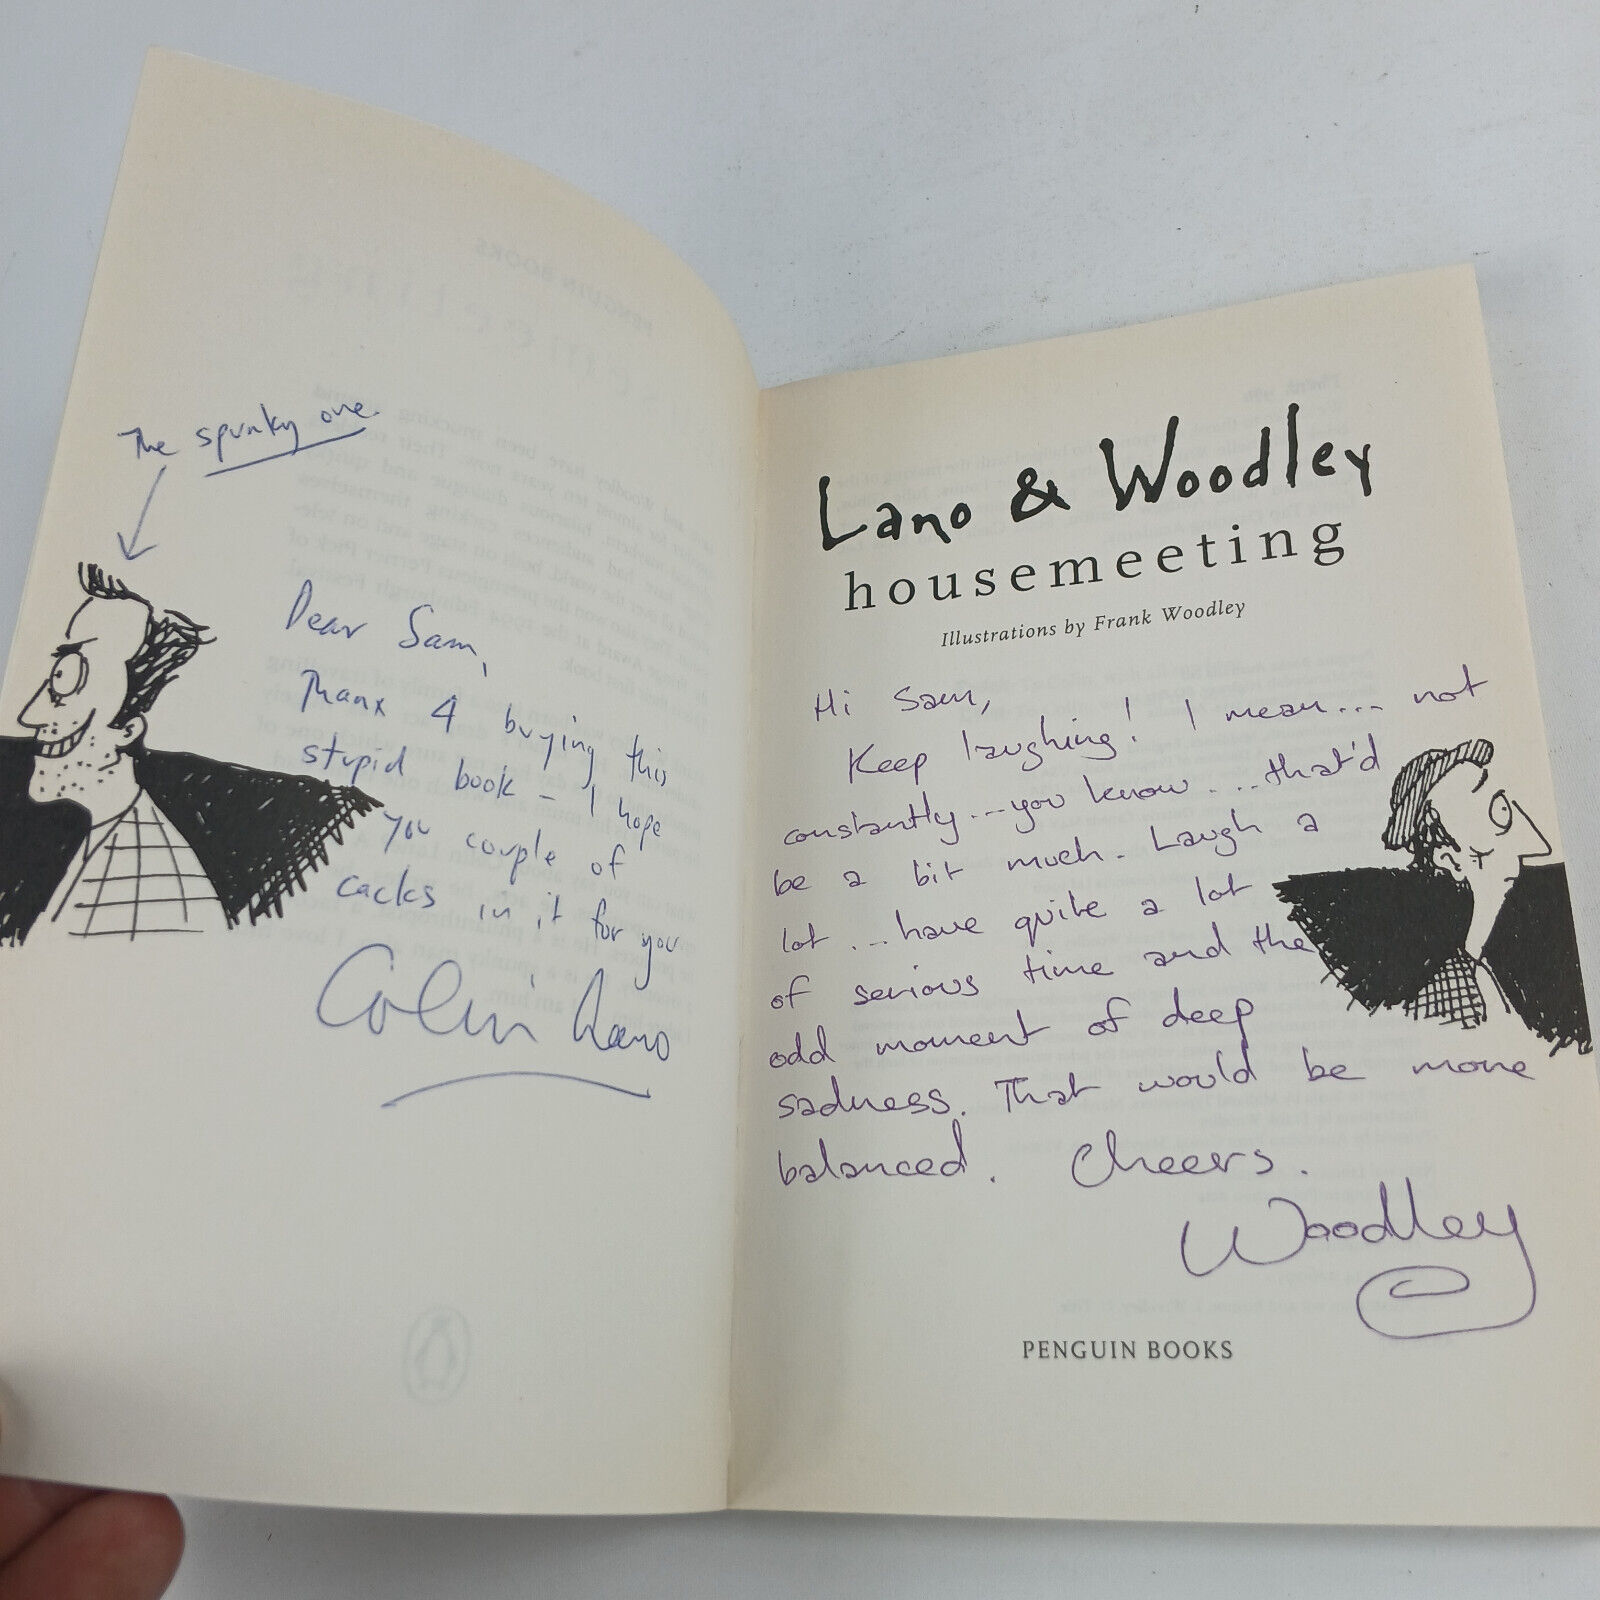 The spunky one.
Dear Sam,
Thanx 4 buying this
stupid book - I hope
you couple of
cacks in it for you
Colin Lano
Lano & Woodley
housemeeting
Illustrations by Frank Woodley
Hi Sam,
Keep laughing! I mean... not
constantly...you know...that'd
be a bit much. Laugh a
lot...have quite a lot
of serious time and the
odd moment of deep
sadness. That would be more
balanced. Cheers.
Woodley
PENGUIN BOOKS